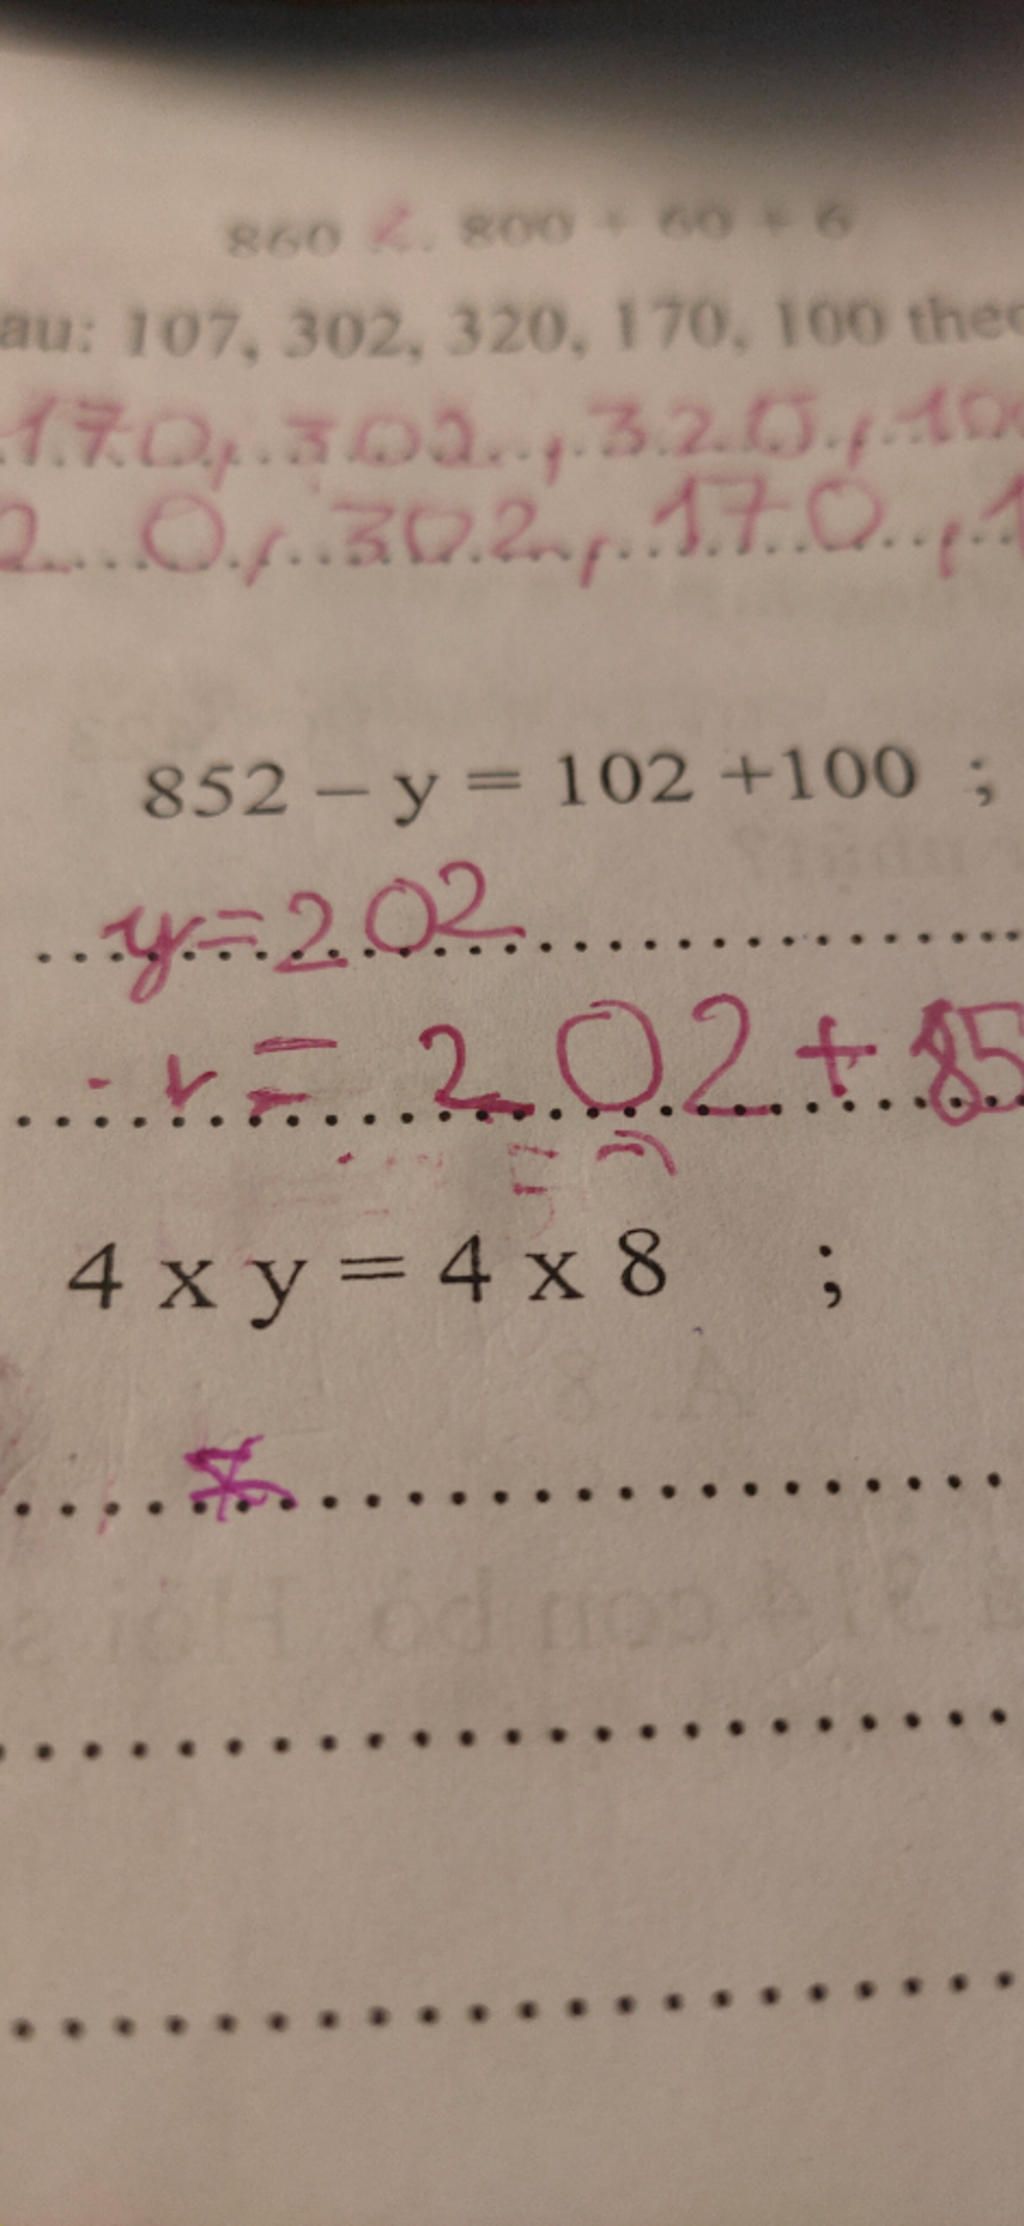 860 < 800 + 60 + 6
au: 107, 302, 320, 170, 100 theo
170, 302, 320, 100
20, 302, 170, 1
852 – y = 102 +100 ;
y=202
= 202+85
4 x y = 4 x 8 ;